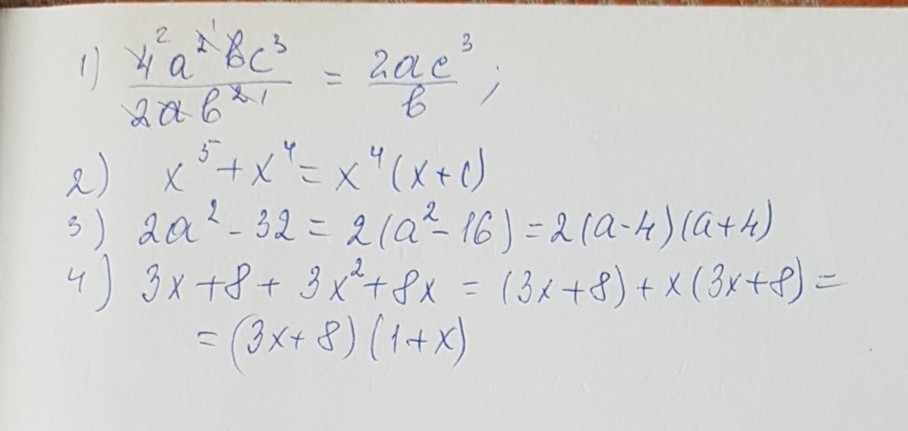 1) 4a²bc³ / 2ab² = 2ac³ / b ;
2) x⁵ + x⁴ = x⁴(x+1)
3) 2a² - 32 = 2(a² - 16) = 2(a-4)(a+4)
4) 3x + 8 + 3x² + 8x = (3x+8) + x(3x+8) =
= (3x+8)(1+x)